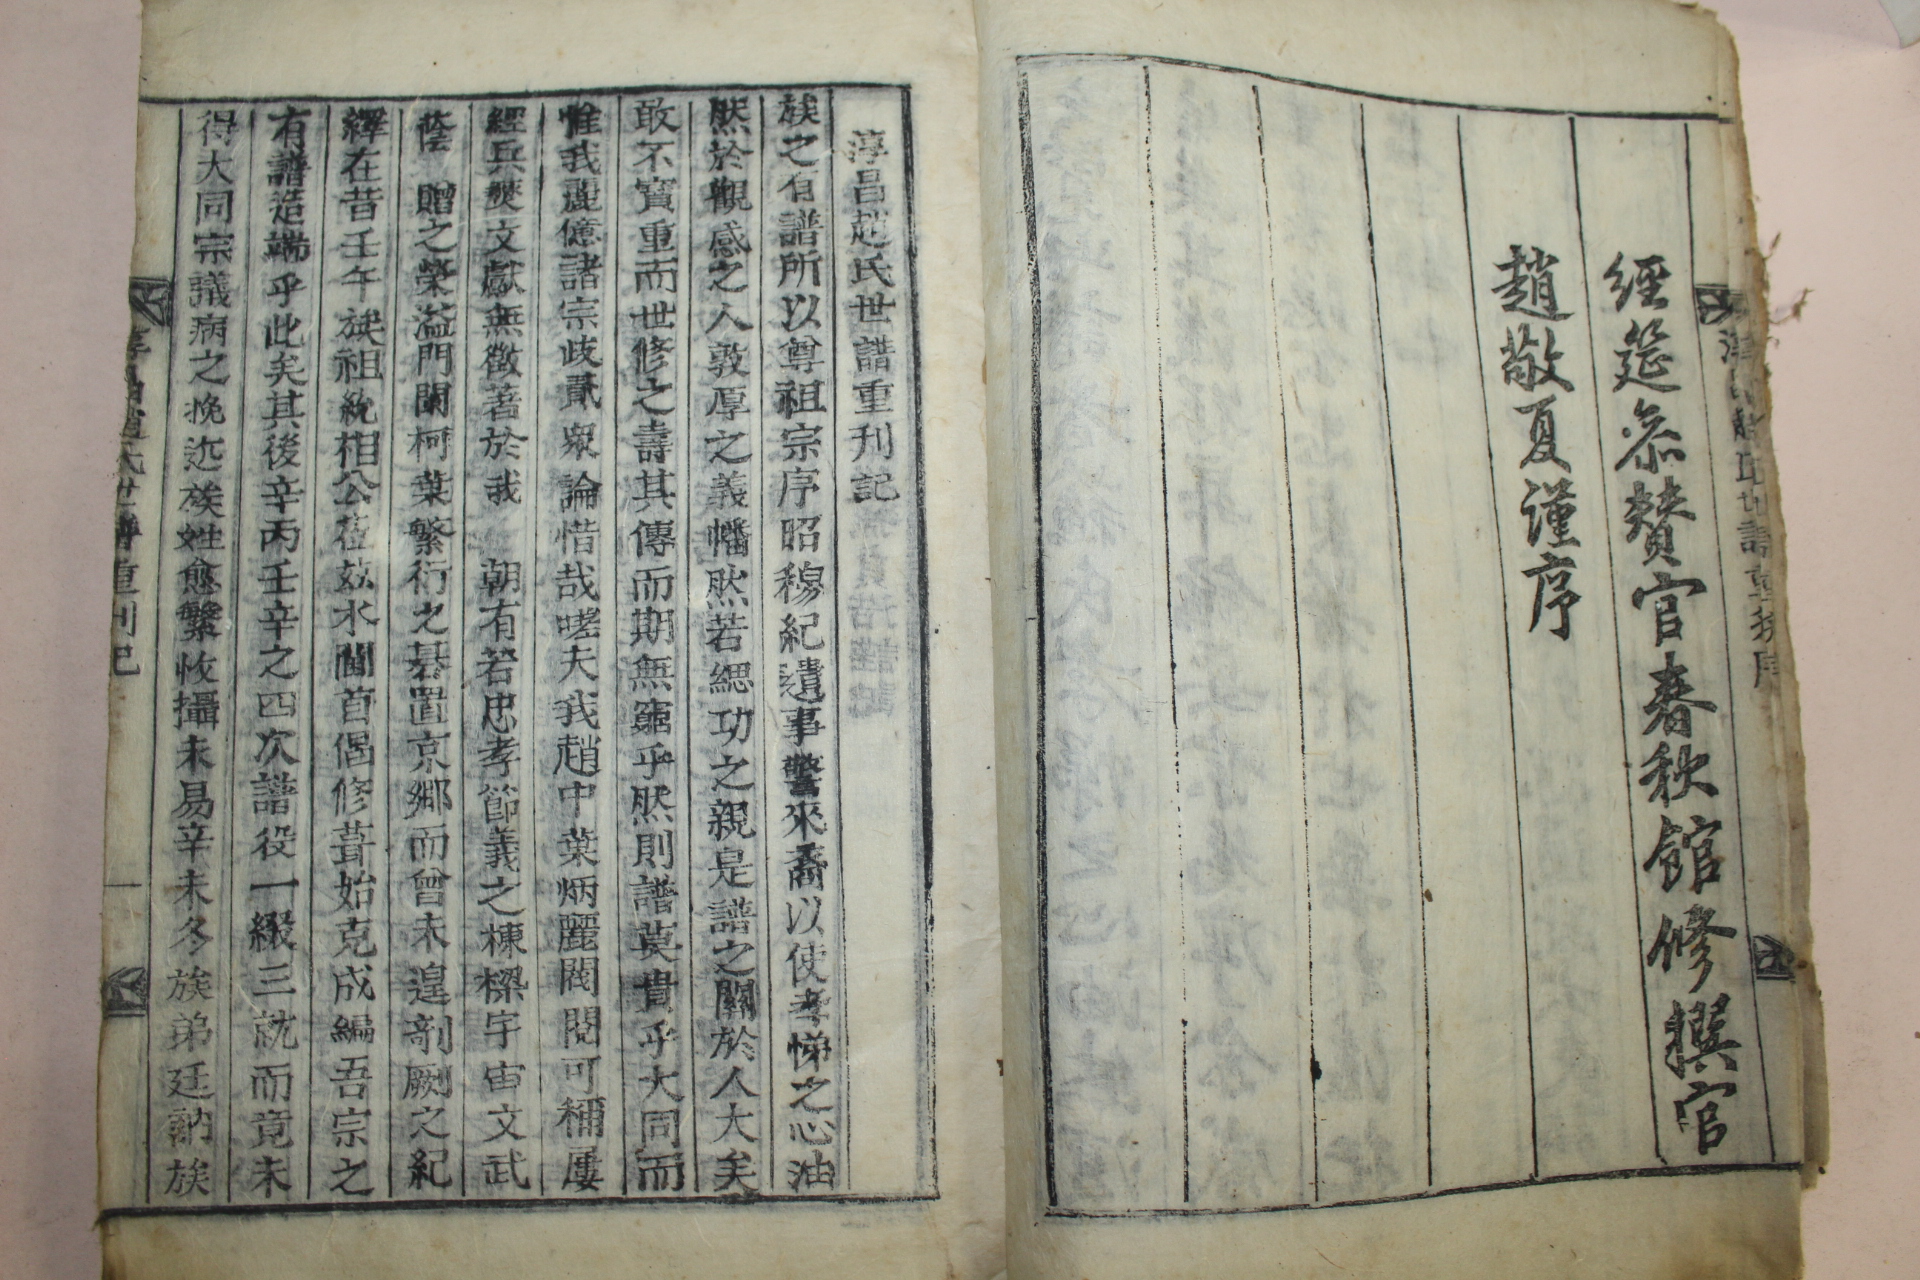 經筵叅賛官春秋館修撰官
趙敬夏謹序
淳昌趙氏世譜重刊記
族之有譜所以尊祖宗序昭穆紀遺事警來裔以使孝悌之心油
然於觀感之人敦厚之義幡然若緦功之親是譜之關於人大矣
敢不寶重而世修之壽其傳而期無窮乎然則譜莫貴乎大同而
惟我麗億諸宗歧貳衆論惜哉嗟夫我趙中葉炳麗閥閱可稱屢
經兵燹文獻無徵著於我 朝有若忠孝節義之棟樑宇宙文武
蔭 贈之榮溢門闌柯葉繁衍之碁置京鄕而曾未遑剞劂之紀
繹在昔壬午族祖統相公莅玆水閫首偈修葺始克成編吾宗之
有譜造端乎此矣其後辛丙壬辛之四次譜役一綴三就而竟未
得大同宗議病之挽近族姓愈繁收攝未易辛未冬族弟廷訥族
淳昌趙氏世譜重刊記
一